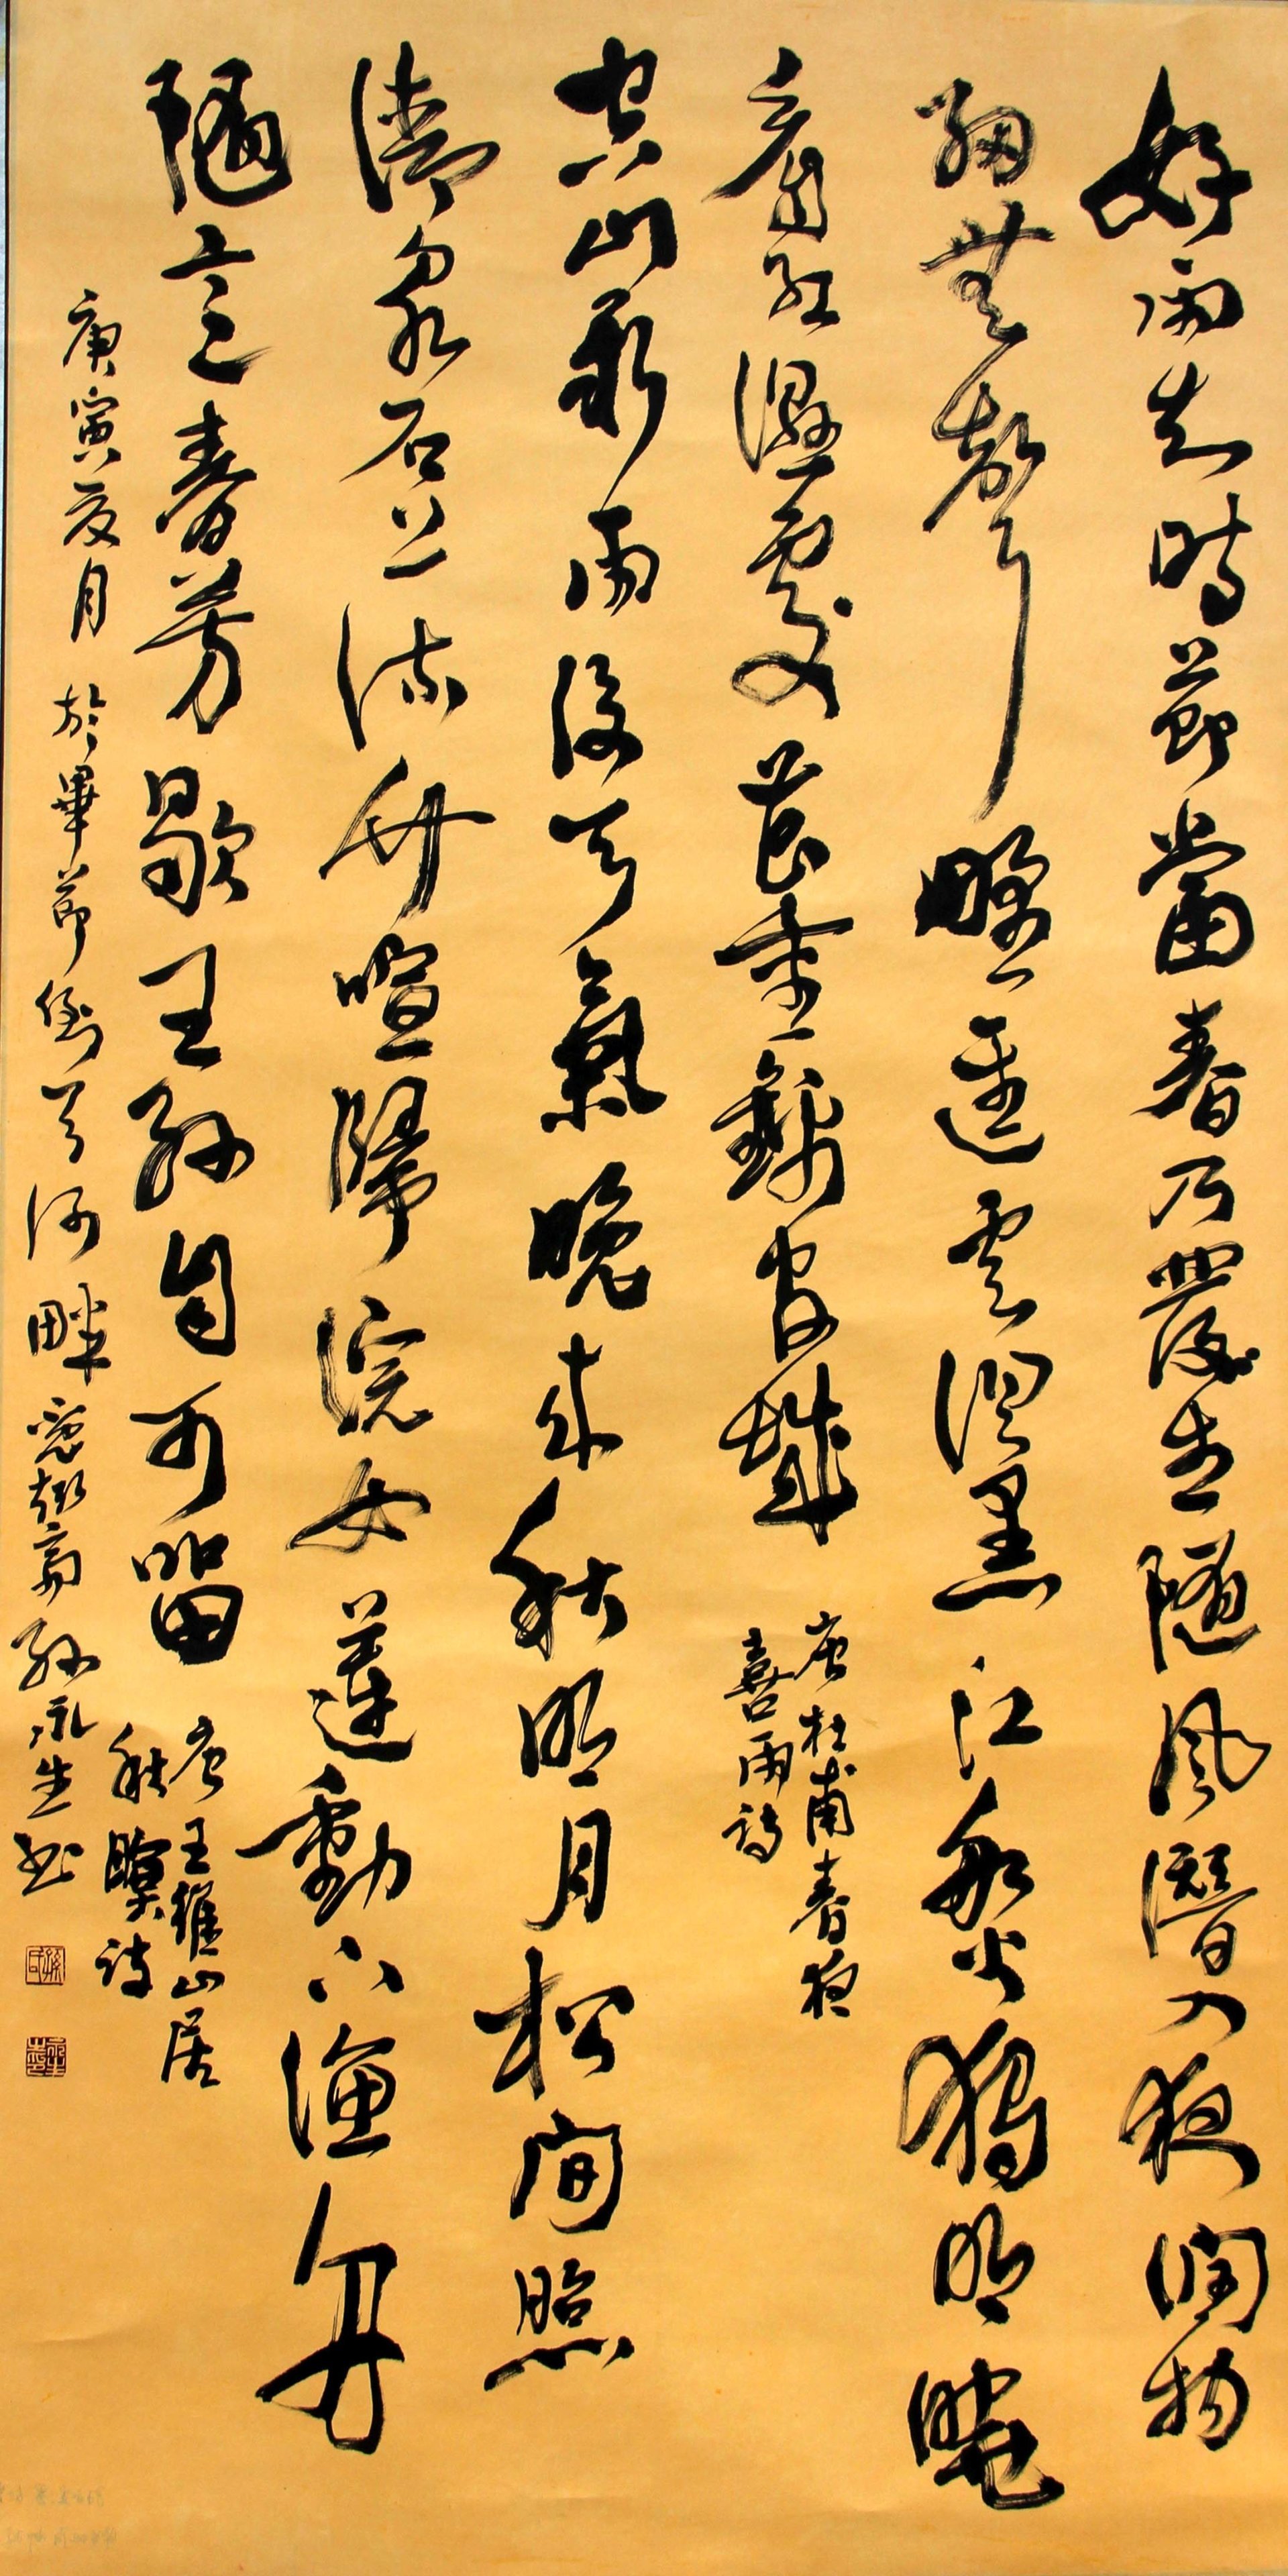 好雨知時節當春乃發生隨風潛入夜潤物
細無聲野逕雲俱黑江船火獨明曉
看紅濕處花重錦官城
唐杜甫春夜
喜雨詩
空山新雨後天氣晚來秋明月松間照
清泉石上流竹喧歸浣女蓮動下漁舟
隨意春芳歇王孫自可留
唐王維山居
秋暝詩
庚寅夏月於畢節倒天河畔趣齋孫永生書